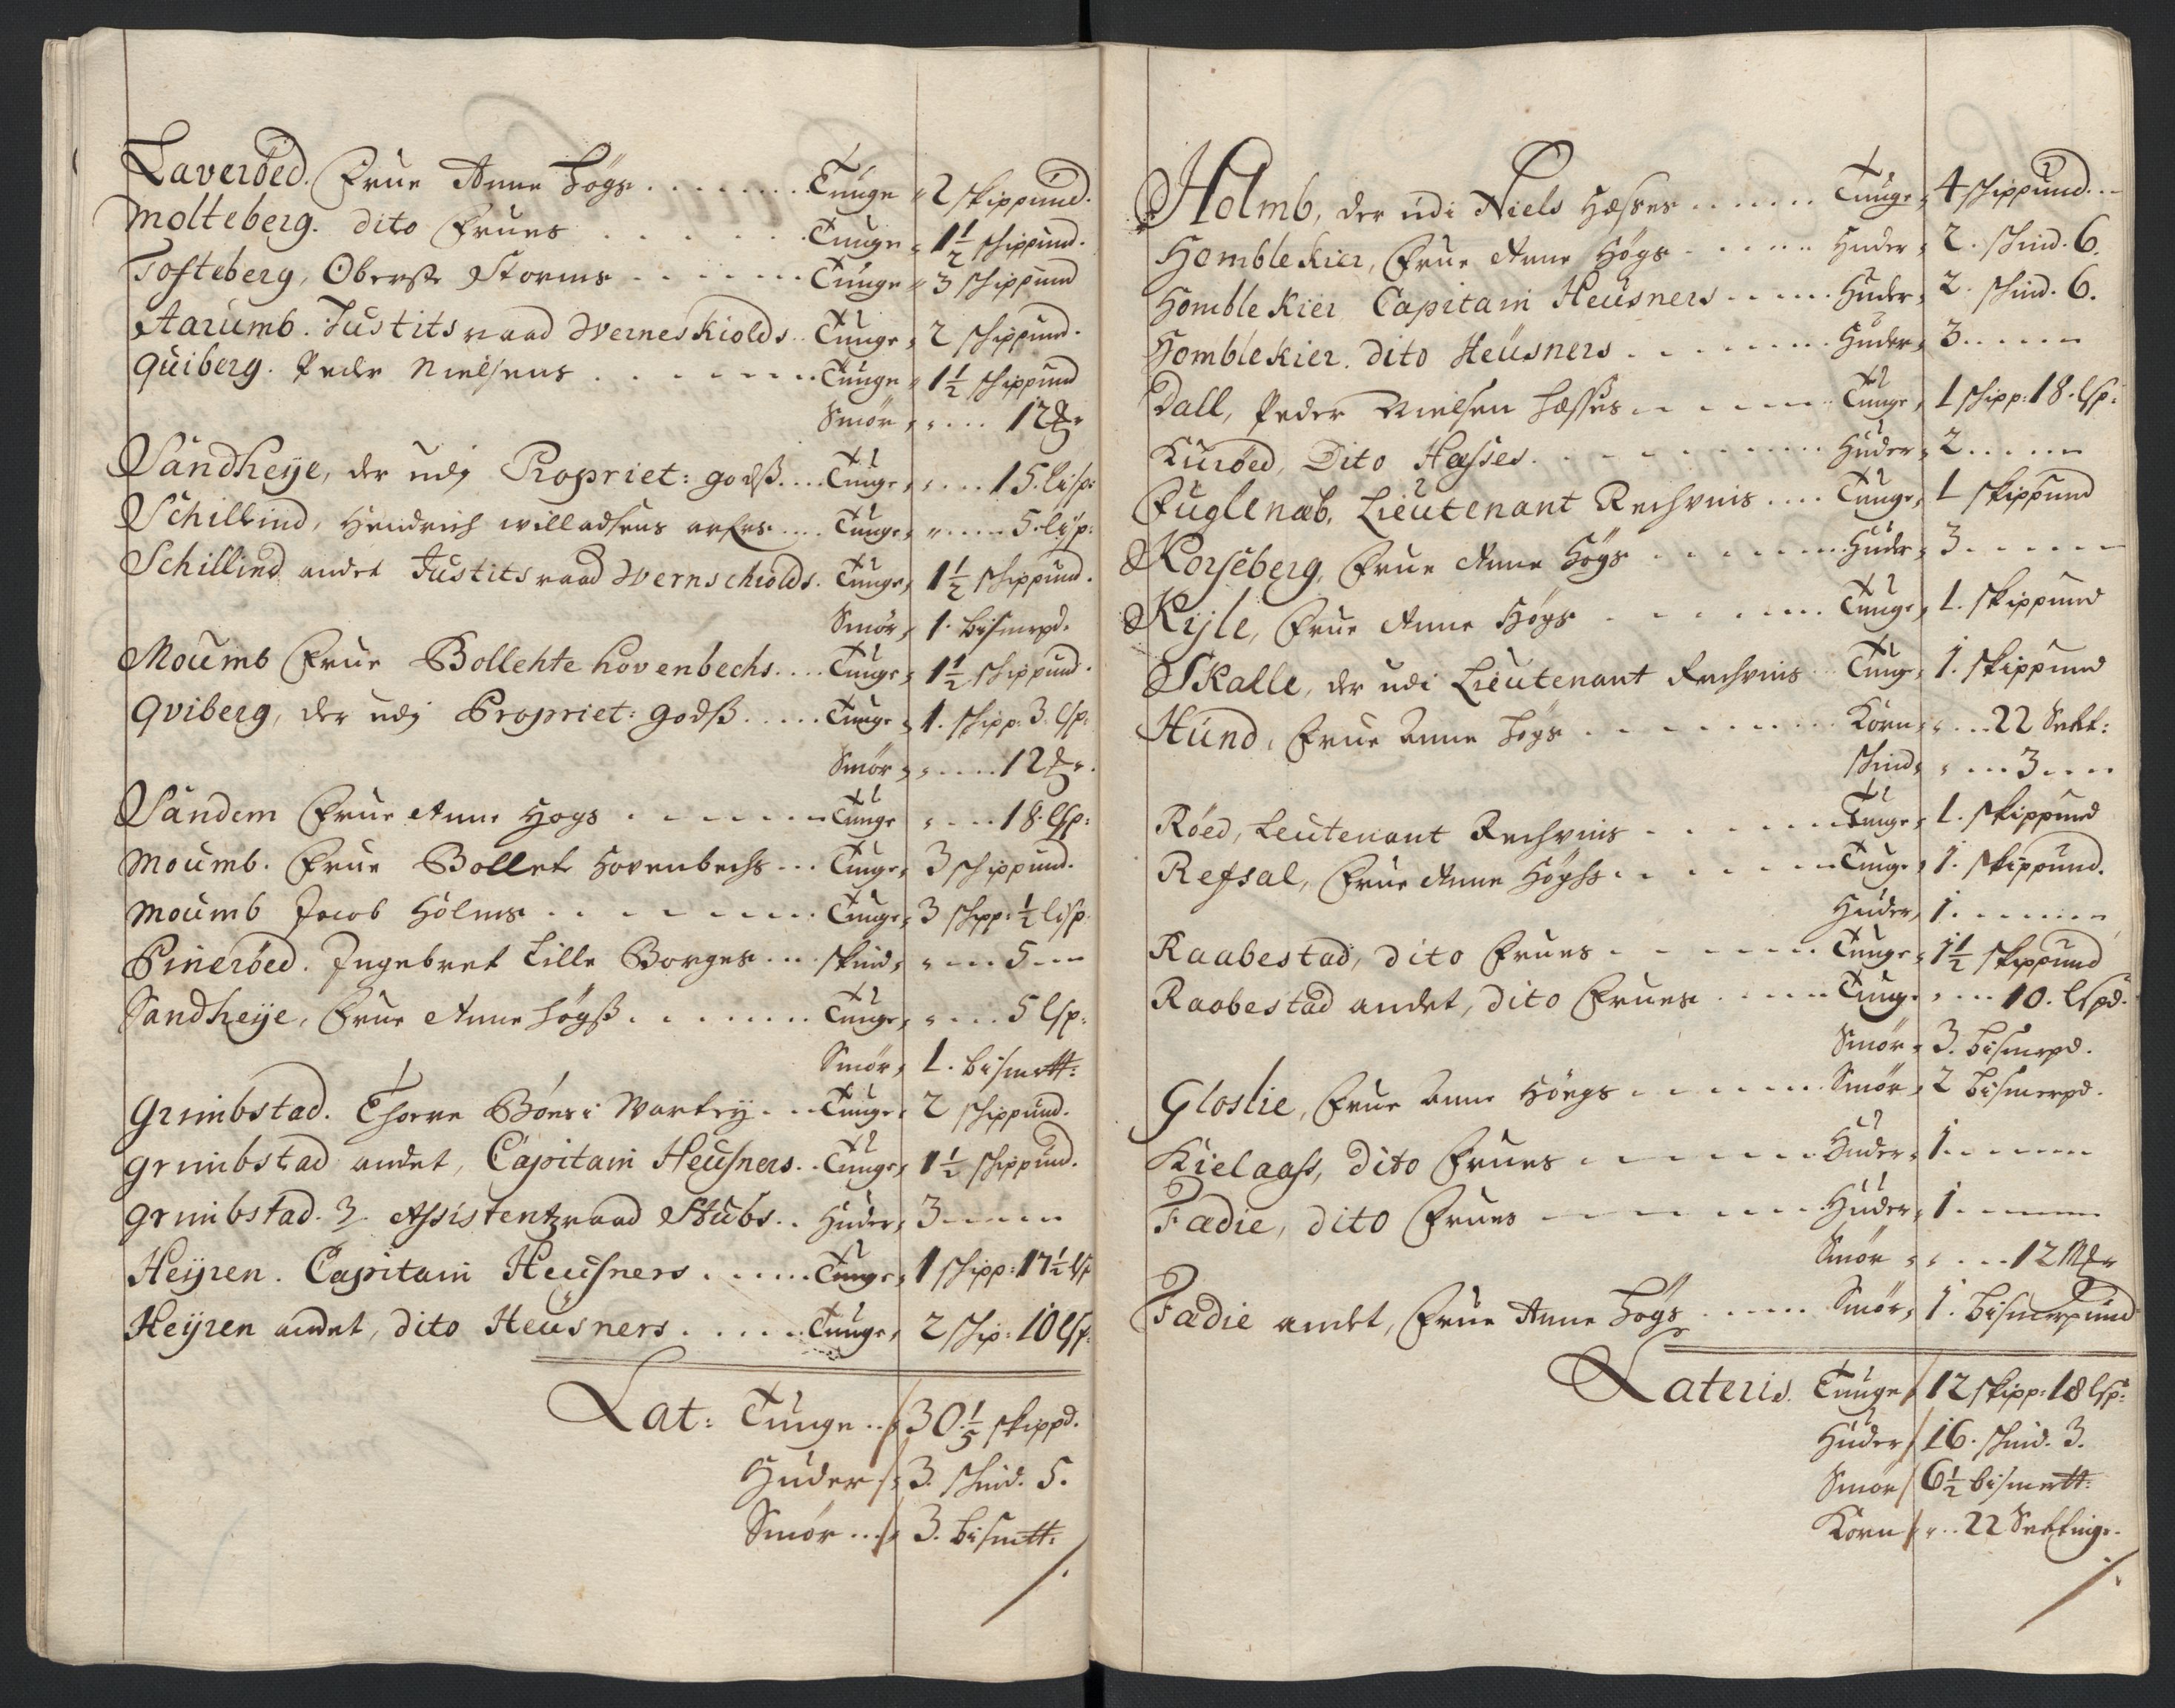 Laveröed. Frue Anne Högs ........ Tunge " 2 skippund.
Molteberg. dito Frues ....... Tunge " 1½ schippund.
Tofteberg, Oberste Storms ....... Tunge " 3 schippund
Aarumb. Justitsraad Werneskiolds .. Tunge " 2 schippund.
Quiberg. Peder Nielsens ........ Tunge " 1½ schippund
Smör " " .... 12 ℔r
Sandheÿe, der udj Propriet: godß .... Tunge " " .... 15. lisp:
Schillind, Hendrich Willadsens arfes .... Tunge " " ..... 5. lisp:
Schillind andet Justitsraad Wernschiolds. Tunge " 1½ schippund.
Smör " 1. bismerpd.
Moumb Frue Bollehte Hovenbechs .... Tunge " 1½ schippund.
Qviberg, der udj Propriet: godß ..... Tunge " 1. schipp: 3. lsp:
Smör " " ..... 12 ℔r.
Sandem Frue Anne Hogs ....... Tunge " .... 18. lsp:
Moumb. Frue Bollet Hovenbechs ... Tunge " 3 schippund.
Moumb Jacob Holms ........ Tunge " 3 schpp: ½ lisp.
Pineröed. Ingebret Lille Borges ... skind " " ... 5 ...
Sandheÿe, Frue Anne Högß ........ Tunge " " .... 5 lsp:
Smör " 1. bismrtt:
Grimbstad. Thorn Böes i Warteig ... Tunge " 2 schippund.
Grimbstad andet, Capitain Heusners .. Tunge " 1½ schippund.
Grimbstad. 3. Assistentzraad Stubs .. Huder " 3 .....
Heÿren. Capitain Heusners ...... Tunge " 1 schipp: 17½ lsp
Heÿren andet, dito Heusners ...... Tunge " 2 schip: 10 lsp:
Lat: Tunge .. / 30 1/5 skippd.
Huder / 3. schind. 5.
Smör ... / 3. bismtt:
Holmb, der udi Niels Hasses ....... Tunge " 4 schippund ...
Homblekier, Frue Anne Högs ...... Huder " 2. schind. 6.
Homblekier Capitain Heusners ..... Huder " 2. schind. 6.
Homblekier. dito Heusners ........ Huder " 3 ......
Dall, Peder Nielsen Hasses ...... Tunge " 1 schipp: 18. lsp:
Kuröed, Dito Hasses .......... Huder " 2 .....
Fuglenæb, Lieutenant Rechvins .... Tunge " 1 skippund
Korseberg, Frue Anne Högs ....... Huder " 3 ......
Kijle, Frue Anne Högs ....... Tunge " 1. skippund
Skalle, der udi Lieutenant Rechvins ... Tunge " 1. skippund
Hund, Frue Anne Högs ........ Korn " " ... 22 Sett:
schind " " ... 3 ....
Röed, Leutenant Rechvins ....... Tunge " 1. skippund
Refsal, Frue Anne Höghs ....... Tunge " 1. skippund.
Huder " 1 .......
Raabestad, dito Frues ....... Tunge " 1½ skippund
Raabestad andet, dito Frues ..... Tunge " ... 10. lspd.
Smör " 3. bismerpd.
Gloslie, Frue Anne Höegs ...... Smör " 2 bismerpd.
Kielaass, dito Frues ....... Huder " 1 ......
Fadie, dito Frues ....... Huder " 1 ......
Smör " " ... 12 Mkr
Fadie andet, Frue Anne Högs ..... Smör " 1. bismerpund
Lateris. Tunge / 12 skipp: 18 lsp:
Huder / 16. schind. 3.
Smör / 6½ bismertt:
Korn / " .. 22 Settinge.